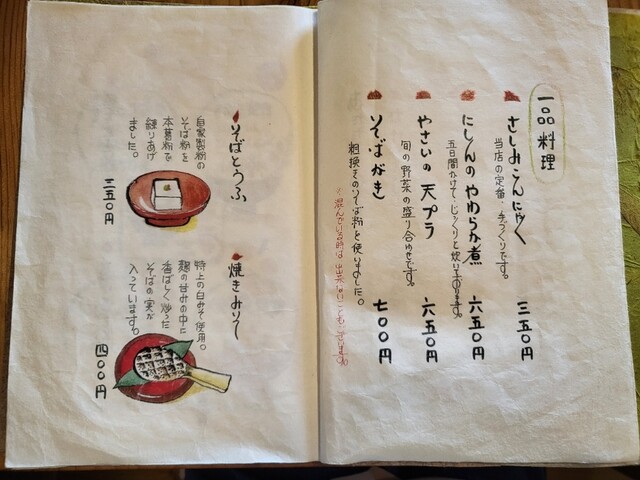 一品料理
さしみこんにゃく
当店の定番、手づくりです。
三五〇円
にしんのやわらか煮
五日間かけて、じっくりと炊いてあります。
六五〇円
やさいの天プラ
旬の野菜の盛り合わせです。
六五〇円
そばがき
粗挽きのそば粉を使いました。
七〇〇円
※混んでいる時は出来ないこともございます。
そばとうふ
自家製粉の
そば粉を
本葛粉で
練りあげ
ました。
三五〇円
焼きみそ
特上の白みそ使用。
麹の甘みの中に
香ばしく炒った
そばの実が
入っています。
四〇〇円